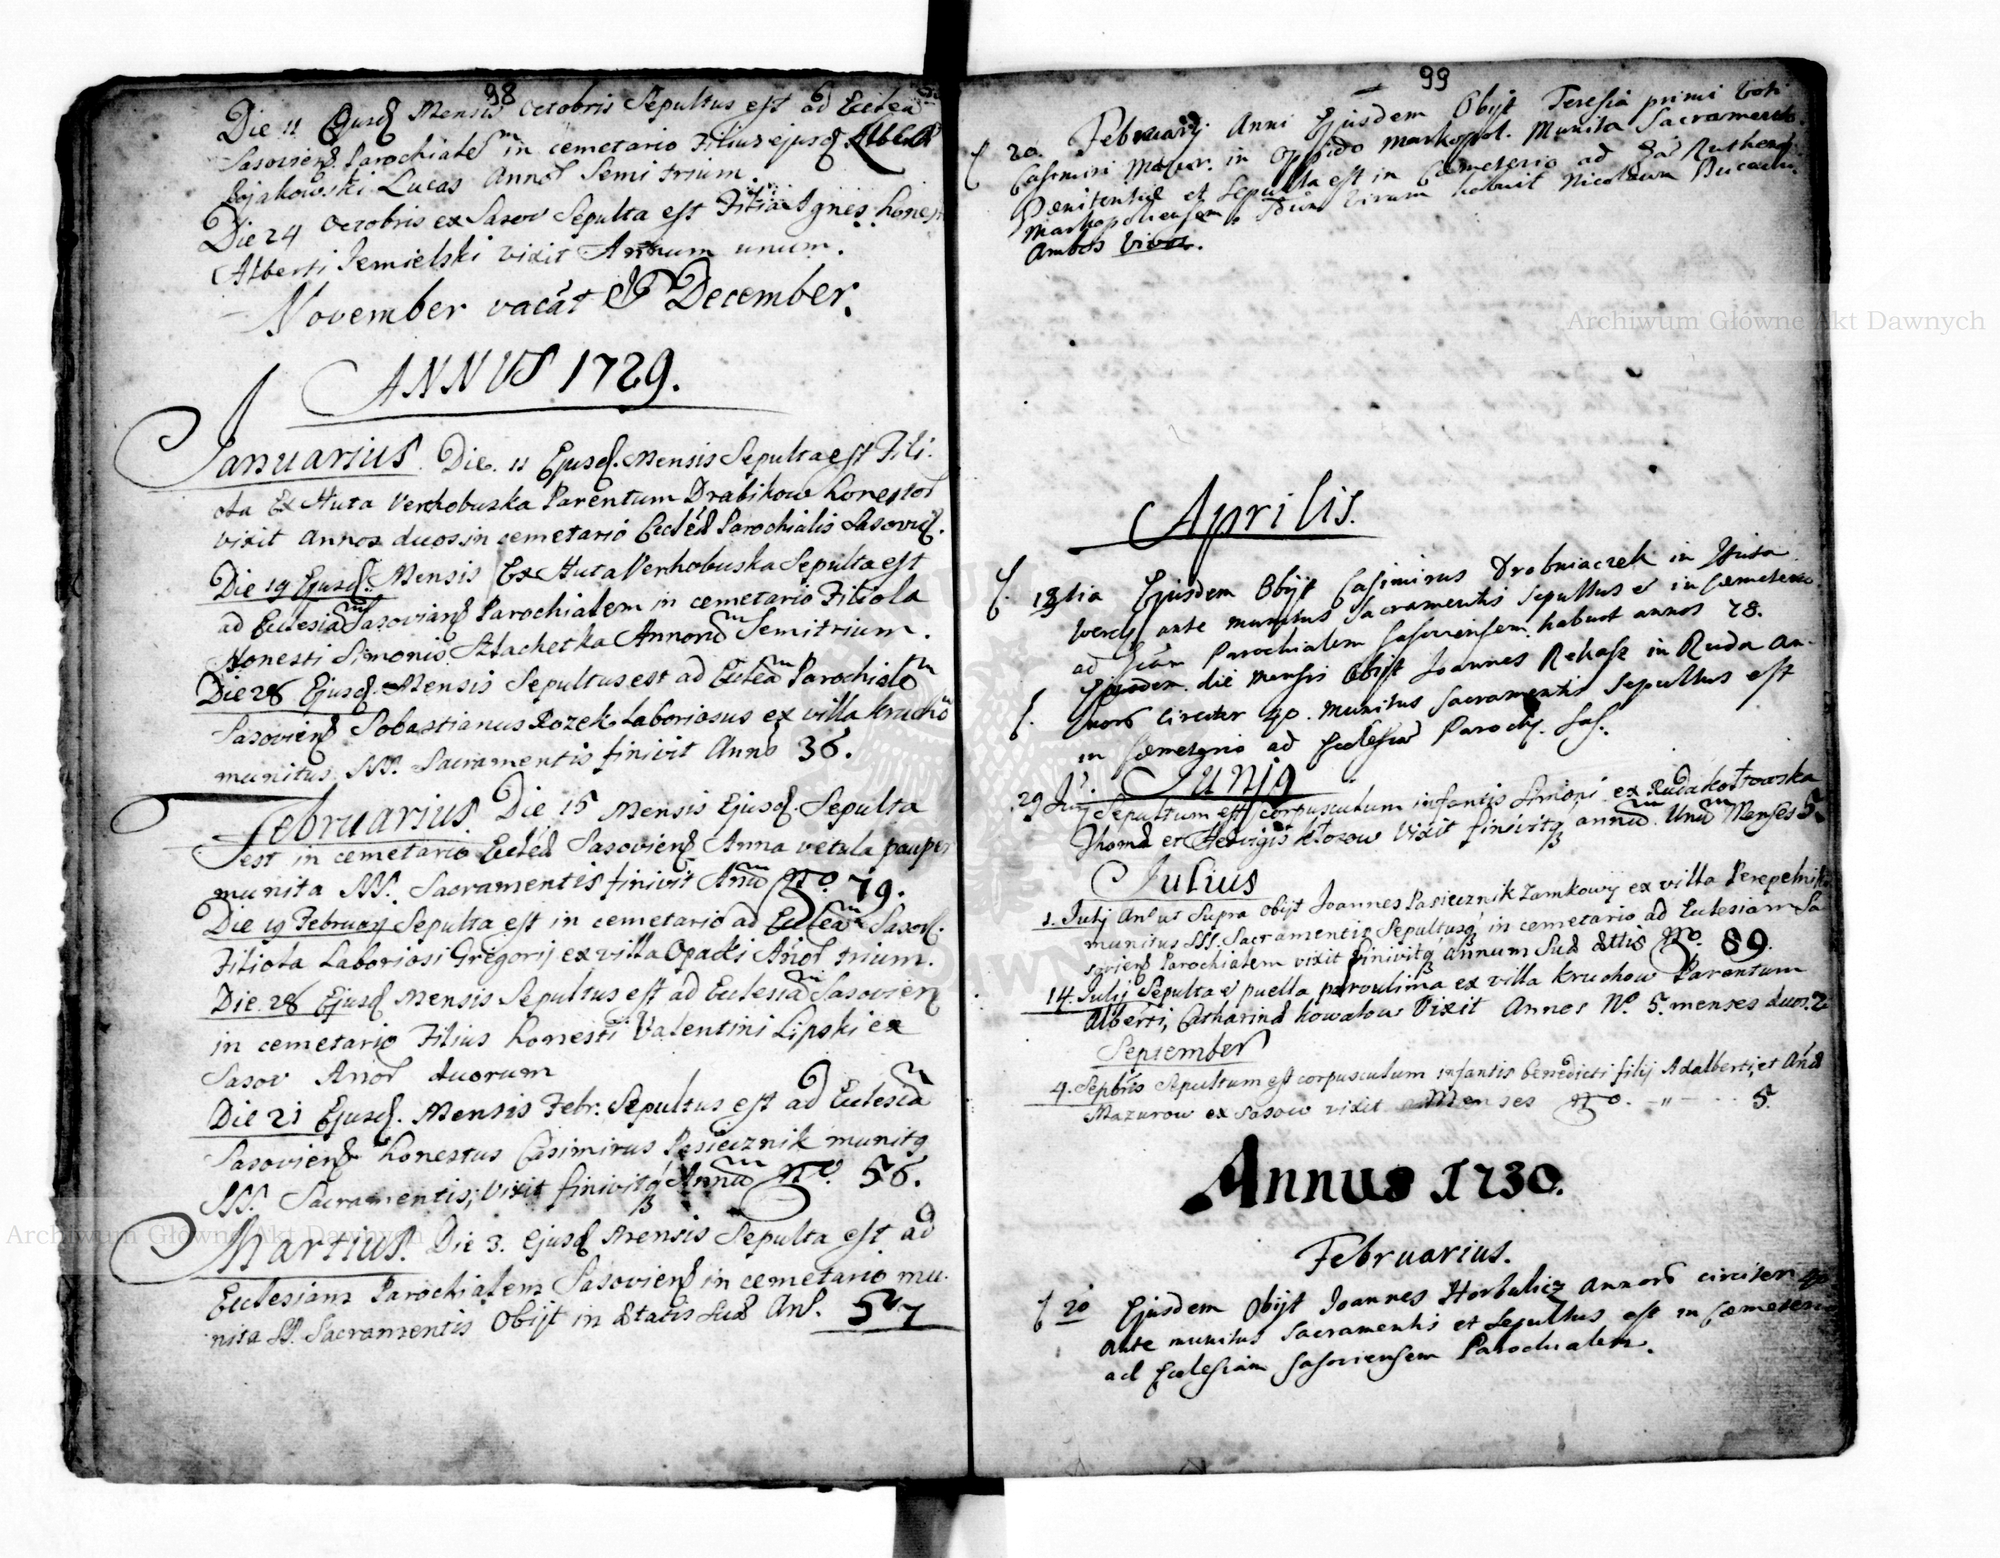 98
Die 11 Ejusd Mensis Octobris Sepultus est ad Eccleā
Sasoviens Parochialem in cemetario Filius ejusd Alberti
Kojakowski Lucas Annor Semi trium.
Die 24 Octobris ex Sasov Sepulta est Filia Agnes honest
Alberti Jemielski vixit Annum unum.
November vacat et December.
ANNUS 1729.
Januarius. Die. 11 Ejusd. Mensis Sepulta est Fili-
ola Ex Huta Verchobuska Parentum Drabikow honestor
vixit Annos duos in cemetario Eccleæ Parochialis Sasovie.
Die 19 Ejusd. Mensis Ex Huta Verhobuska Sepulta est
ad Ecclesiam Sasoviens Parochialem in cemetario Filiola
Honesti Simonis Szlachetka Annorū Semitrium.
Die 28 Ejusd. Mensis Sepultus est ad Eccleā Parochialē
Sasoviens Sebastianus Rozek Laboriosus ex villa Kruchō
munitus SSS. Sacramentis finivit Anno 36.
Februarius. Die 15 Mensis Ejusd. Sepulta
est in cemetario Eccleæ Sasoviens Anna vetula pauper
munita SSS. Sacramentis finivit Anū No. 79.
Die 19 Februarij Sepulta est in cemetario ad Eccleā Sasov.
Filiola Laboriosi Gregorij ex villa Opacki Anor trium.
Die. 28 Ejusd Mensis Sepultus est ad Ecclesiā Sasovien
in cemetario Filius honesti Valentini Lipski ex
Sasov Anor duorum
Die 21 Ejusd. Mensis Febr. Sepultus est ad Ecclesiā
Sasoviens honestus Casimirus Pasiecznik munitq
SSS. Sacramentis; vixit finivitq Annū No. 56.
Martius. Die 3. Ejusd Mensis Sepulta est ad
Ecclesiam Parochialem Sasoviens in cemetario mu-
nita SS. Sacramentis Obijt in ætatis suæ An. 57
99
20 Februarij Anni Ejusdem Obijt Teresia primi voti
Casimiri in Oppido Markopol. Munita Sacramento
Pœnitentiæ et Sepulta est in Cœmeterio ad
Markopoliensem virum habuit Nicolaum
Ambos vivos.
Aprilis.
13tia Ejusdem Obijt Casimirus Drobniaczek in Huta
Werch ante munitus Sacramentis Sepultus e in Cœmeterio
ad Parochialem Sasoviensem. habuit annos 78.
Ejusdem die mensis Obijt Joannes Rekasz in Ruda an-
norū Circiter 40. munitus Sacramentis Sepultus est
in Cœmeterio ad Ecclesiā Paroch. Sas.
Junij
29 Sepultum est corpusculum infantis Simoni ex Ruda Kołtowska
Thomæ et Hedvigis Kłosow Vixit finivitq annū. Unū Menses 5.
Julius
1. Julij An ut Supra obijt Joannes Pasiecznik Zamkowy ex villa Perepelniki
munitus SSS. Sacramentis Sepultusq in cemetario ad Ecclesiam Sa
soviens Parochialem vixit finivitq annum Suæ Ættis No. 89.
14. Julij Sepulta e puella parvulima ex villa Kruchow Parentum
Alberti, Catharinæ Kowalow Vixit Annos No. 5. menses duos. 2
September
4. Septbris Sepultum est corpusculum infantis benedicti filij Adalberti, et Annæ
Mazurow ex Sasow vixit Menses No. - " - . . 5.
Annus 1730.
Februarius.
20 Ejusdem Obijt Joannes Horbulicz annorū circiter 40
ante munitus Sacramentis et Sepultus est in Cœmeterio
ad Ecclesiam Sasoviensem Parochialem.
Archiwum Główne Akt Dawnych
Archiwum Główne Akt Dawnych